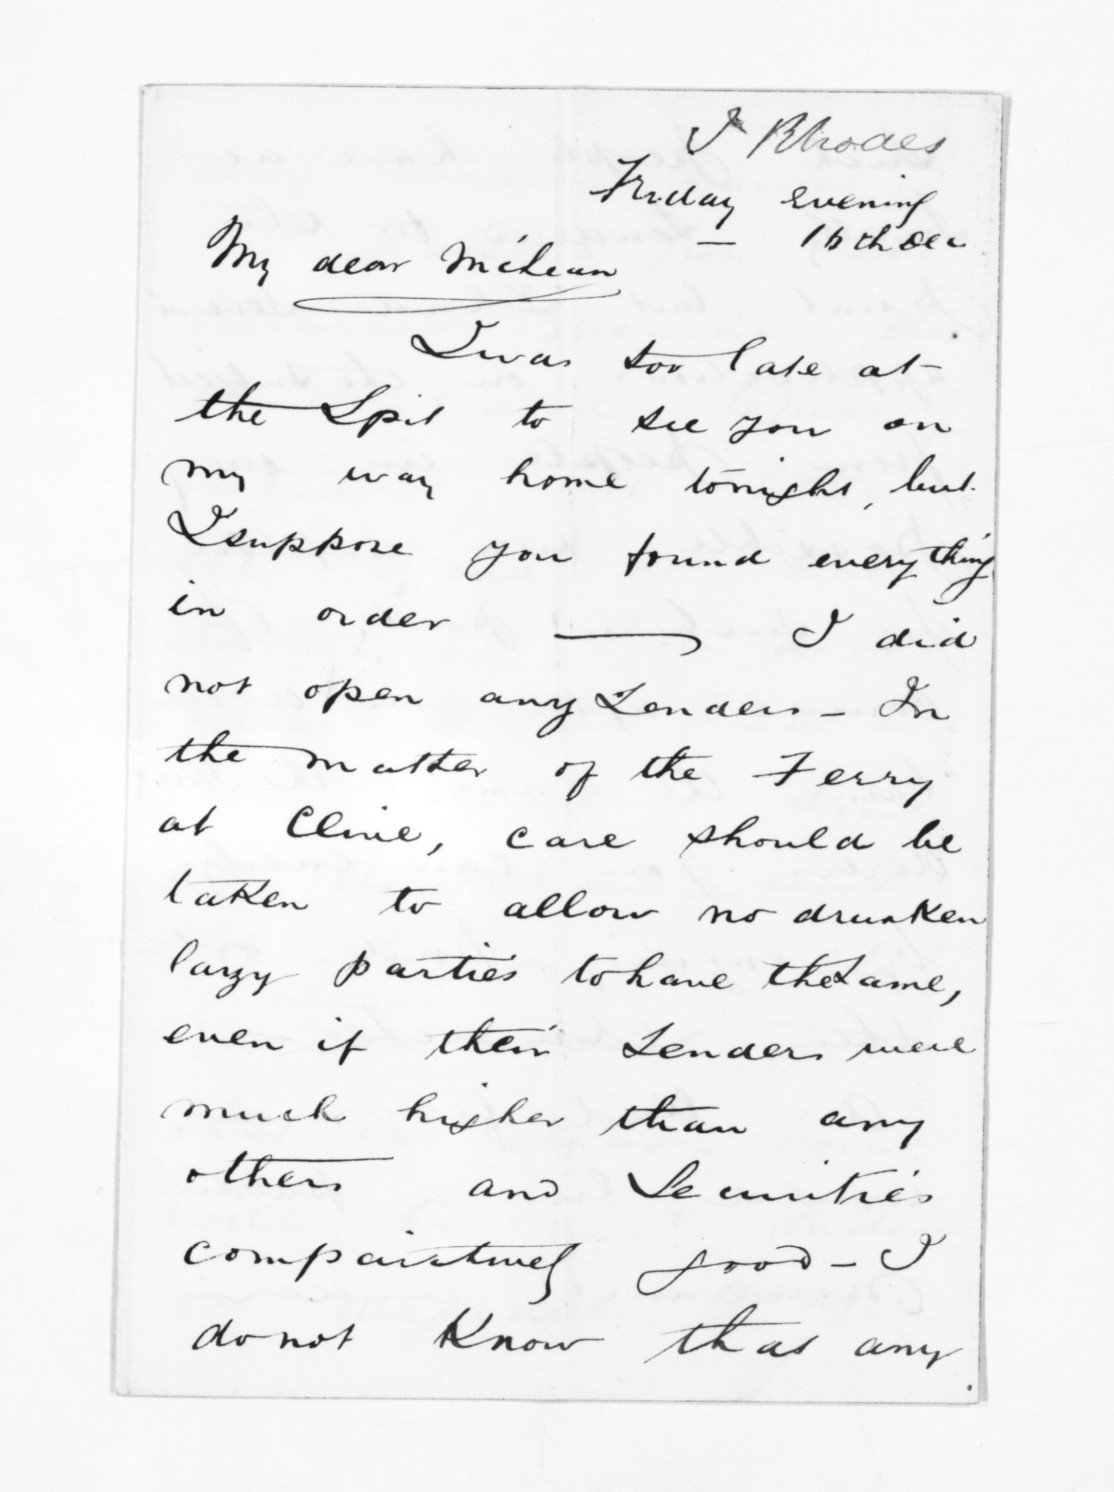 J Rhodes
Friday evening
— 16th Dec
My dear McLean
I was too late at
the Spit to see you on
my way home tonight, but
I suppose you found everything
in order — I did
not open any Tenders — In
the matter of the Ferry
at Clive, care should be
taken to allow no drunken
lazy parties to have the same,
even if their Tenders were
much higher than any
others and Securities
comparitively good — I
do not Know that any